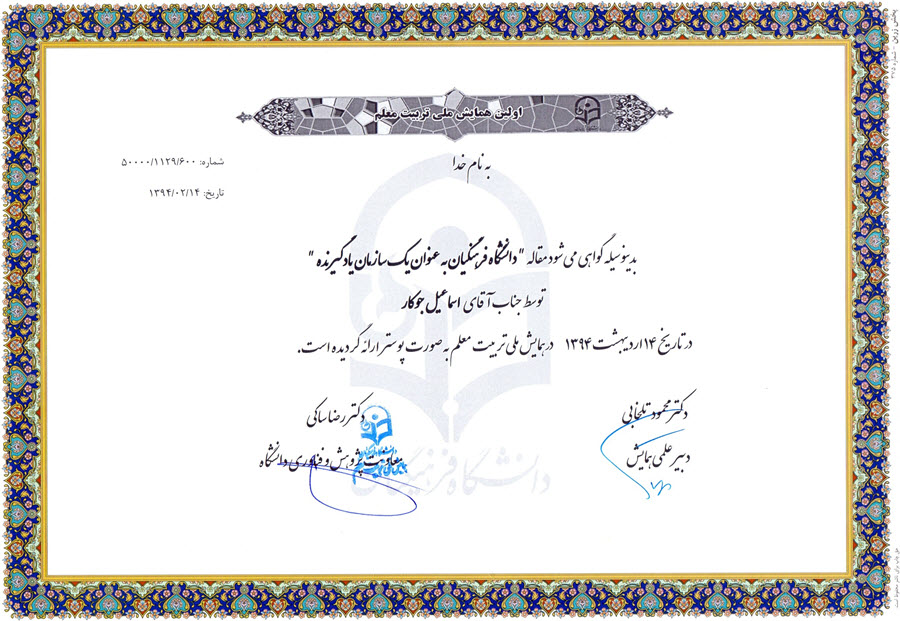 اولین همایش ملی تربیت معلم
به نام خدا
شماره: ۵۰۰۰۰/۱۱۲۹/۶۰۰
تاریخ: ۱۳۹۴/۰۲/۱۴
بدینوسیله گواهی می شود مقاله "دانشگاه فرهنگیان به عنوان یک سازمان یادگیرنده"
توسط جناب آقای اسماعیل جوکار
در تاریخ ۱۴ اردیبهشت ۱۳۹۴ در همایش ملی تربیت معلم به صورت پوستر ارائه گردیده است.
دکتر محمود تلخابی
دبیر علمی همایش
دکتر رضا ساکی
معاونت پژوهش و فناوری دانشگاه
دانشگاه فرهنگیان